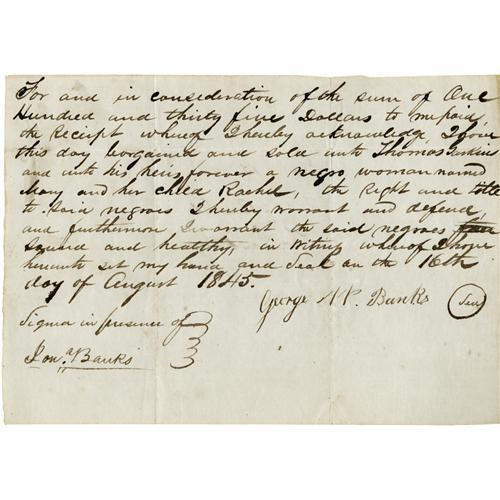 For and in consideration of the sum of One
Hundred and thirty five Dollars to me paid,
the Receipt whereof I hereby acknowledge, I have
this day bargained and sold unto Thomas Jenkins
and unto his heirs forever a negro woman named
Mary and her child Rachel, the Right and title
to said negroes I hereby warrant and defend,
and furthermore I warrant the said negroes
Sound and healthy, in witness whereof I have
hereunto set my hand and Seal on the 16th
day of August 1845.
George N P. Banks Seal
Signed in presence of
Jona. Banks